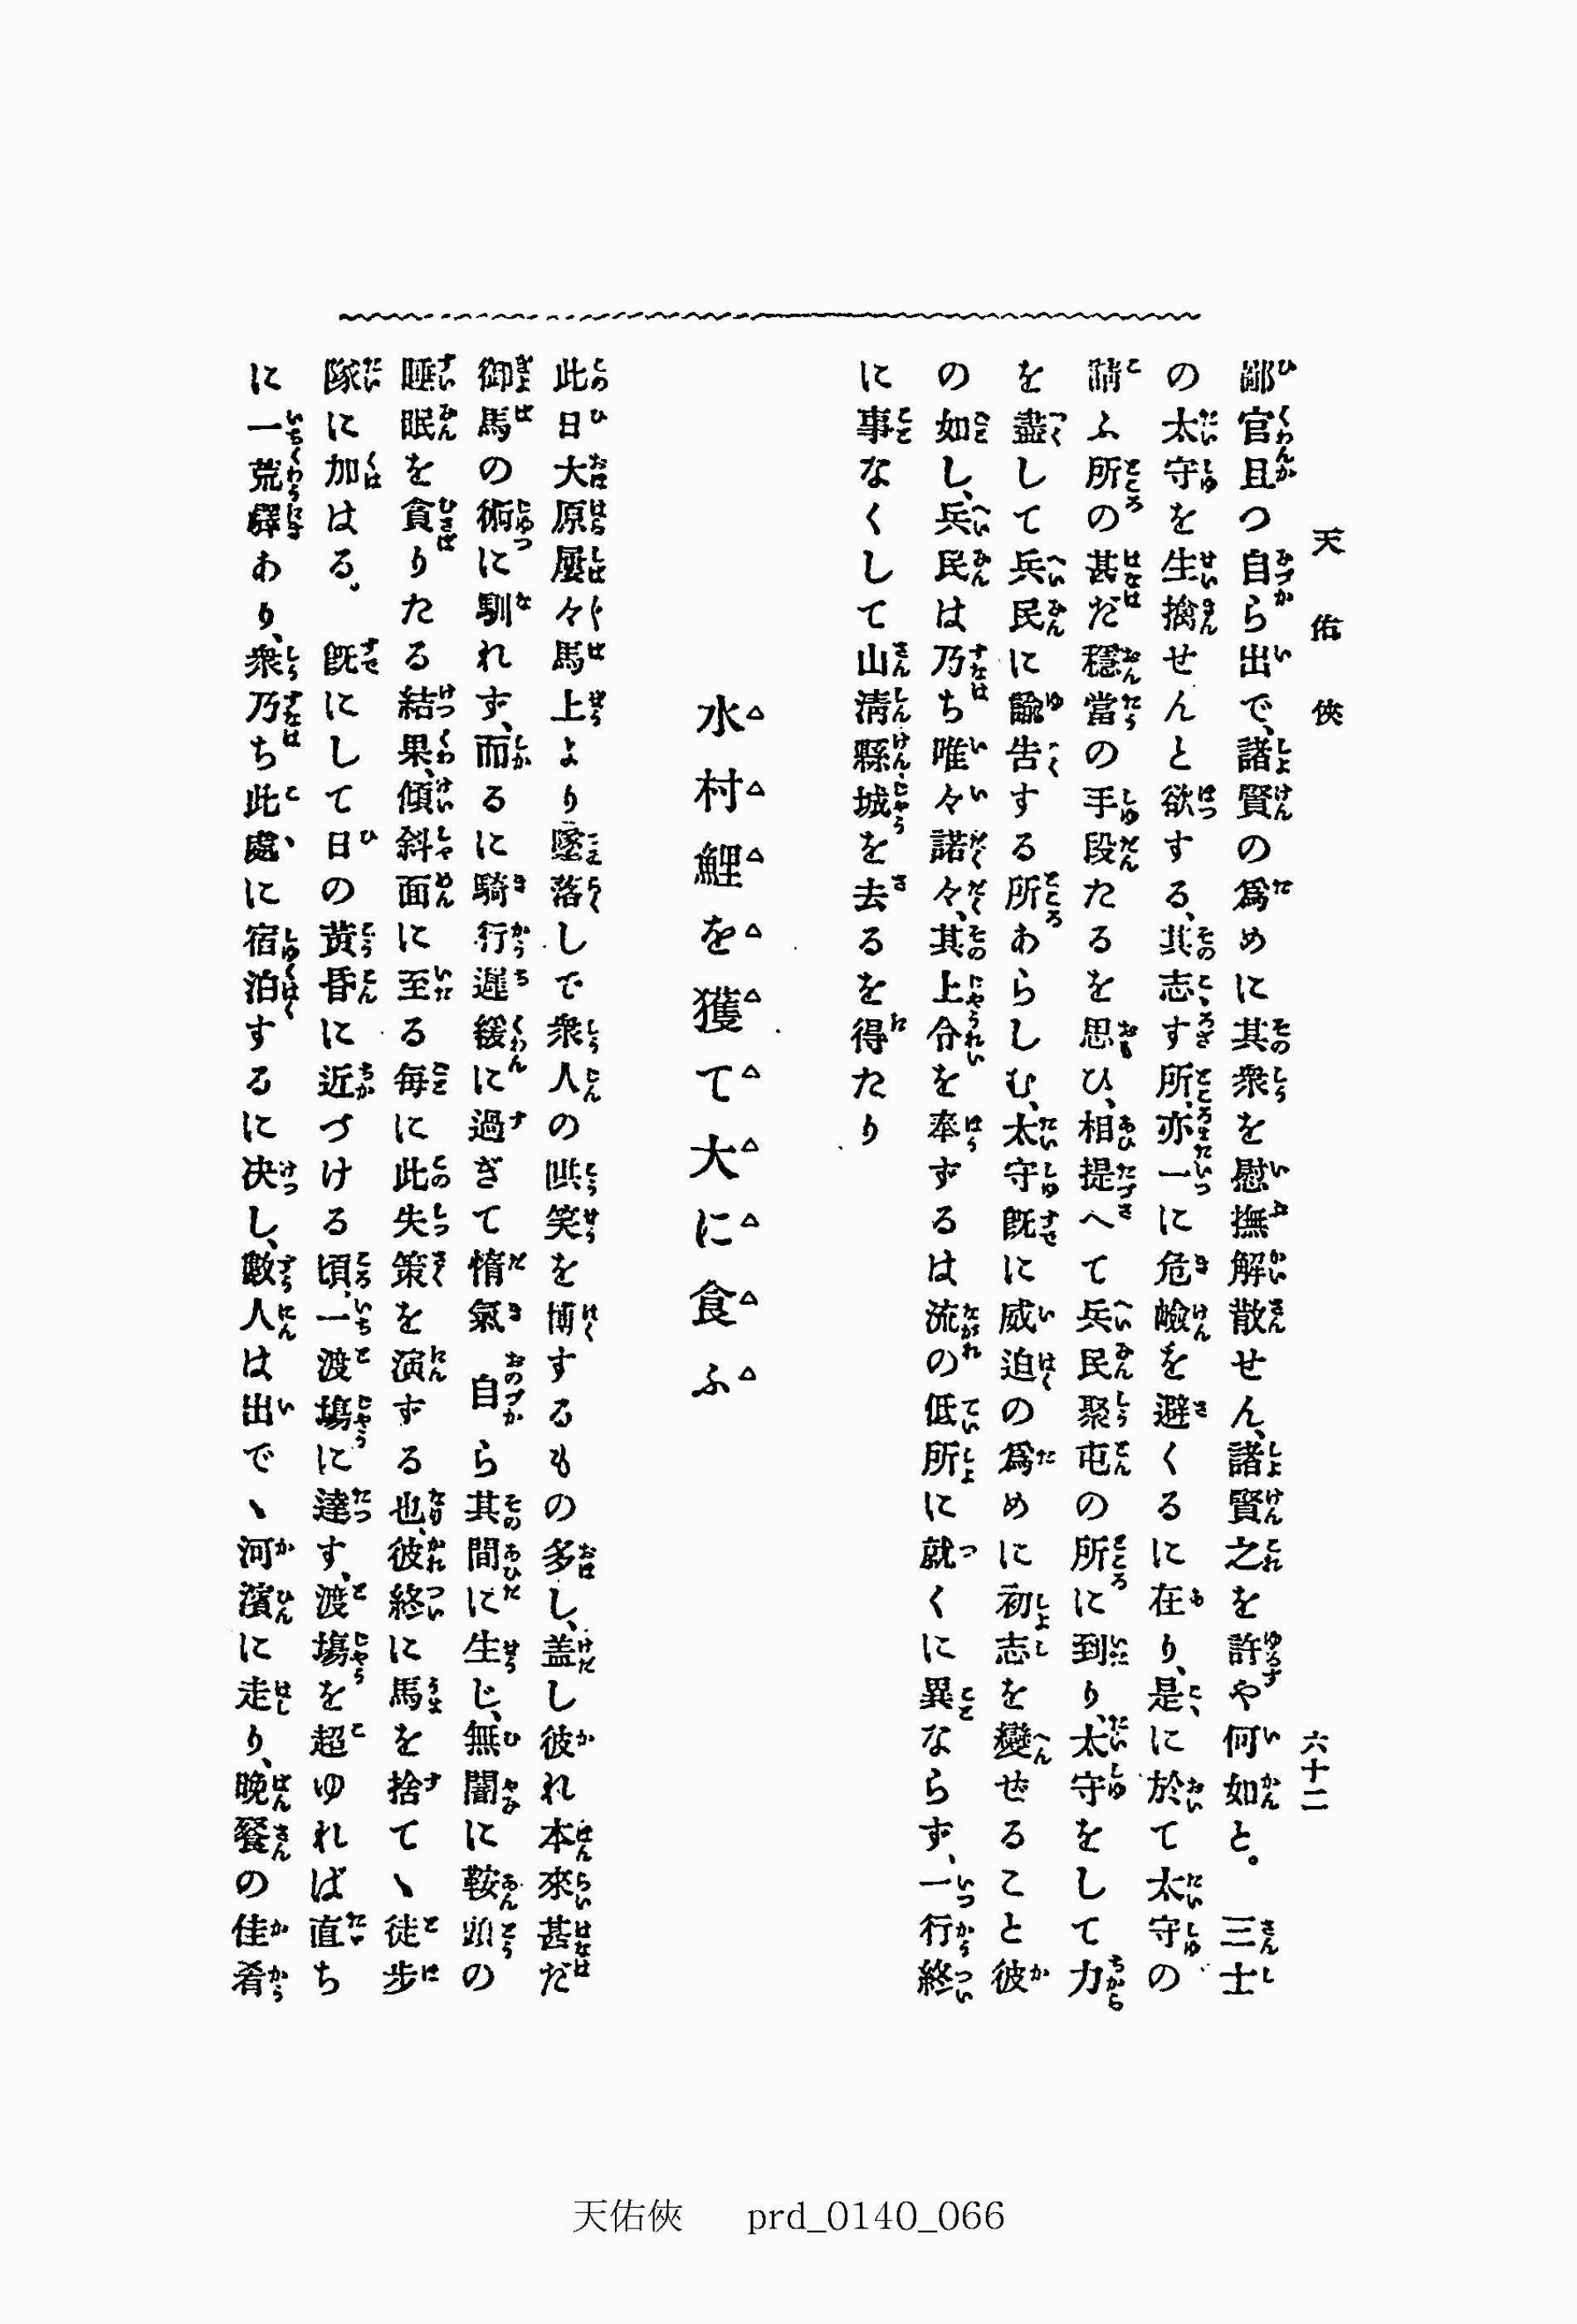 天佑俠
六十二
鄙官且つ自ら出で、諸賢の爲めに其衆を慰撫解散せん、諸賢之を許すや何如と。　三士
の太守を生擒せんと欲する、其志す所、亦一に危險を避くるに在り、是に於て太守の
請ふ所の甚だ穩當の手段たるを思ひ、相提へて兵民聚屯の所に到り、太守をして力
を盡して兵民に諭告する所あらしむ、太守既に威迫の爲めに初志を變せること彼
の如し、兵民は乃ち唯々諾々、其上令を奉ずるは流の低所に就くに異ならず、一行終
に事なくして山淸縣城を去るを得たり
水村鯉を獲て大に食ふ
此日大原屢々馬上より墜落しで衆人の哄笑を博するもの多し、盖し彼れ本來甚だ
御馬の術に馴れず、而るに騎行遲緩に過ぎて惰氣自ら其間に生じ、無闇に鞍頭の
睡眠を貪りたる結果、傾斜面に至る毎に此失策を演ずる也、彼終に馬を捨てヽ徒步
隊に加はる。　既にして日の黃昏に近づける頃、一渡塲に達す、渡塲を超ゆれば直ち
に一荒驛あり、衆乃ち此處に宿泊するに决し、數人は出でヽ河濱に走り、晩餐の佳肴
天佑俠　prd_0140_066